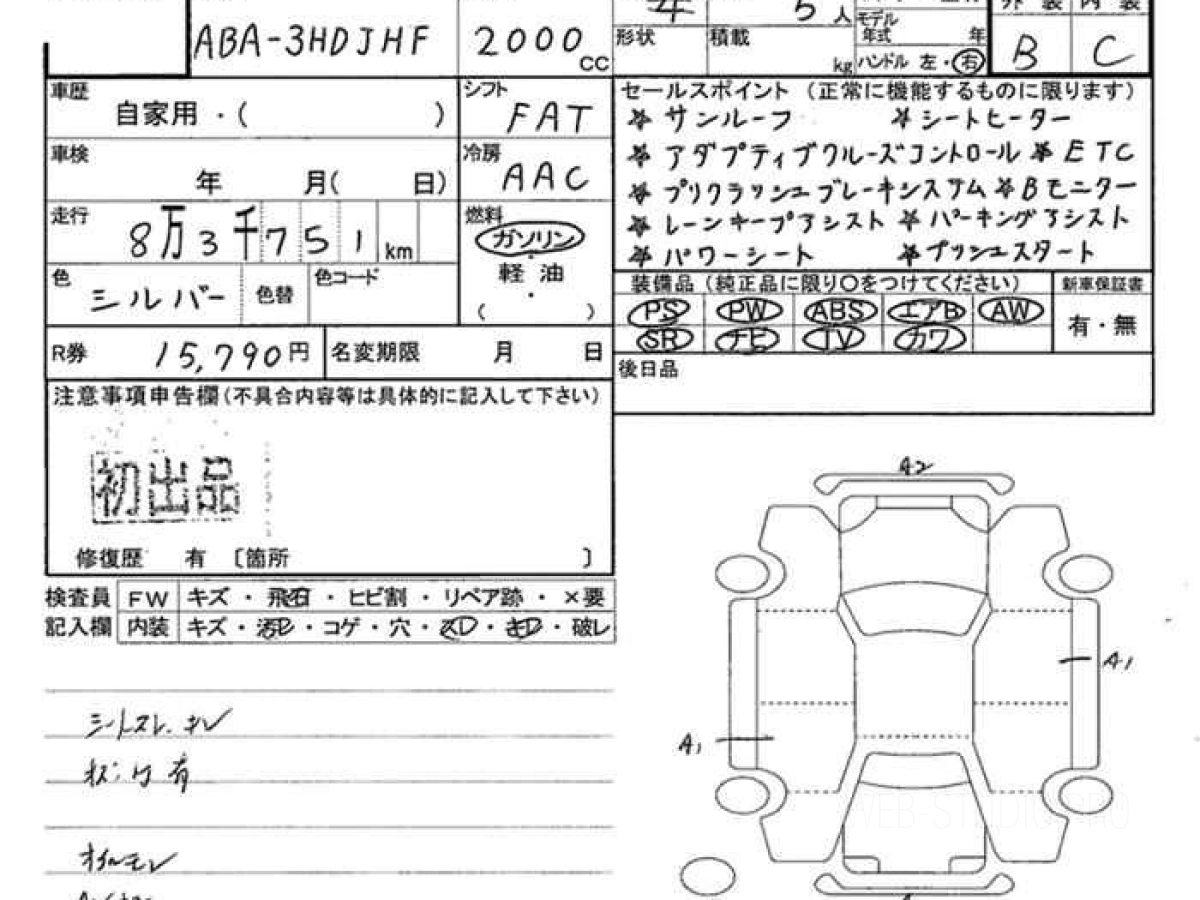 外装 内装
5人
モデル
年式 年
ABA-3HDJHF 2000 CC
形状 積載 kg
ハンドル 左・右
B C
車歴
自家用・( )
シフト
FAT
セールスポイント (正常に機能するものに限ります)
☆サンルーフ ☆シートヒーター
☆アダプティブクルーズコントロール ☆ETC
☆プリクラッシュブレーキシステム ☆Bモニター
☆レーンキープアシスト ☆パーキングアシスト
☆パワーシート ☆プッシュスタート
車検
年 月( 日)
冷房
AAC
走行
8万3千751km
燃料
ガソリン
軽油
・
( )
色
シルバー
色替
色コード
装備品 (純正品に限り○をつけてください)
新車保証書
PS PW ABS エアB AW
有・無
SR ナビ TV カワ
R券 15,790円
名変期限 月 日
後日品
注意事項申告欄(不具合内容等は具体的に記入して下さい)
初出品
修復歴 有 〔箇所 〕
検査員 FW キズ・飛石・ヒビ割・リペア跡・×要
記入欄 内装 キズ・汚レ・コゲ・穴・スレ・キレ・破レ
A2
A1
A1
シートスレ.キレ
オイルモレ
WEB-STUDIO.PRO